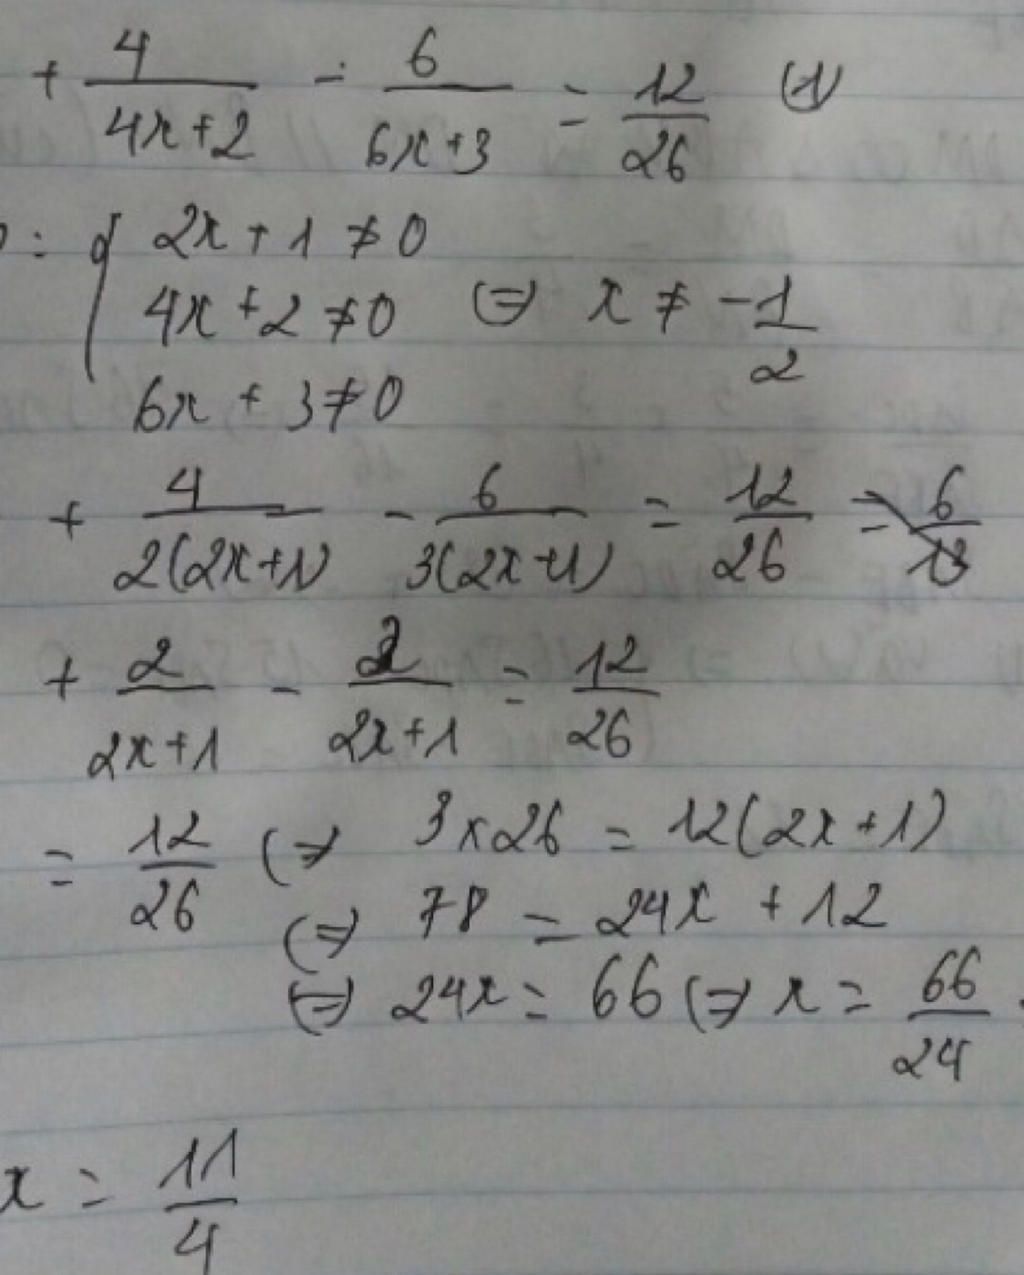 + 4/(4x+2) - 6/(6x+3) = 12/26 (1)
: { 2x + 1 ≠ 0
4x + 2 ≠ 0 (=) x ≠ -1/2
6x + 3 ≠ 0
+ 4/(2(2x+1)) - 6/(3(2x+1)) = 12/26 = 6/13
+ 2/(2x+1) - 2/(2x+1) = 12/26
= 12/26 (=) 3x26 = 12(2x+1)
(=) 78 = 24x + 12
(=) 24x = 66 (=) x = 66/24
x = 11/4